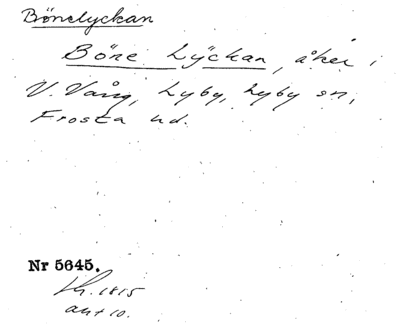 Bönelyckan
Böne Lÿckan, åker i
V. Vång, Lyby, Lyby sn,
Frosta hd.
Nr 5645.
Lh. 1815
akt 10.